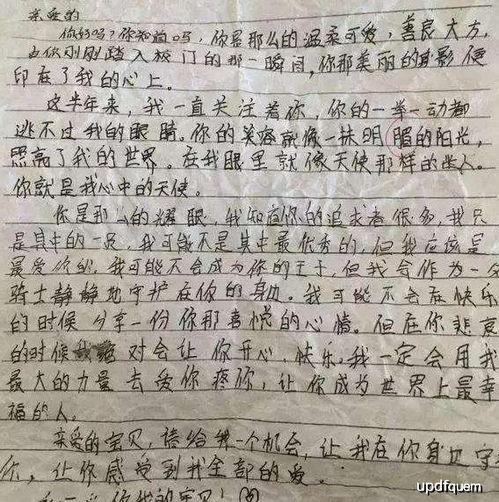 亲爱的
你好吗?你知道吗,你是那么的温柔可爱,善良大方,
当你刚刚踏入校门的那一瞬间,你那美丽的身影便
印在了我的心上。
这半年来,我一直关注着你,你的一举一动都
逃不过我的眼睛。你的笑容就像一抹明媚的阳光,
照亮了我的世界。在我眼里就像天使那样的坐人。
你就是我心中的天使。
你是那么的耀眼,我知道你的追求者很多,我只
是其中的一员,我可能不是其中最优秀的,但我应该是
最爱你的,我可能不会成为你的王子,但我会作为一个
骑士静静地守护在你的身边。我可能不会在快乐
的时候分享一份你那喜悦的心情。但在你悲哀
的时候绝对会让你开心、快乐,我一定会用我
最大的力量去爱你疼你,让你成为世界上最幸
福的人。
亲爱的宝贝,请给我一个机会,让我在你身边守
你,让你感受到我全部的爱。
你我的宝贝!
updfquem